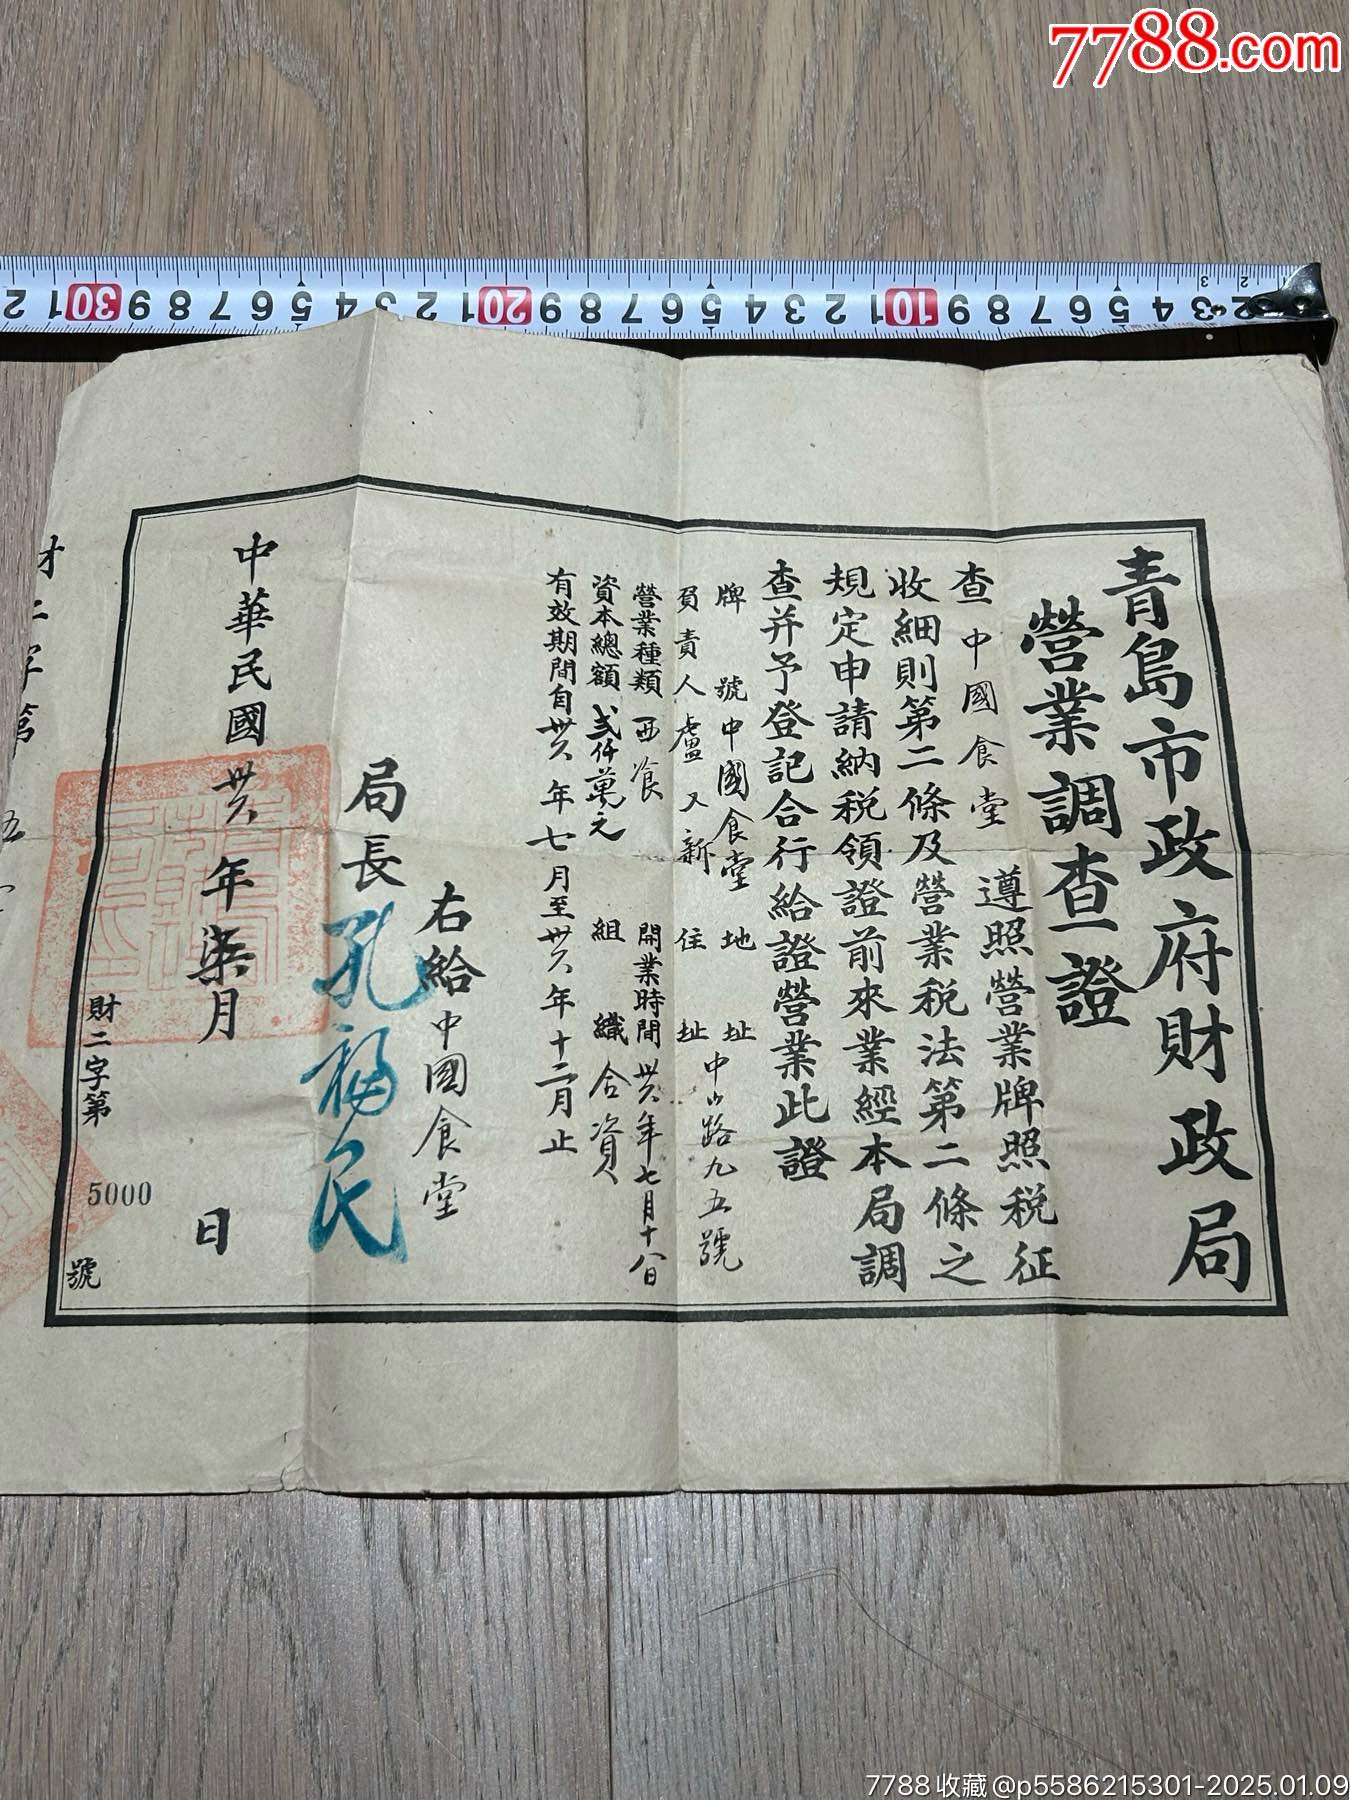 7788.com
青島市政府財政局
營業調查證
查中國食堂 遵照營業牌照稅征
收細則第二條及營業稅法第二條之
規定申請納稅領證前來業經本局調
查并予登記合行給證營業此證
牌號中國食堂 地址中山路九五號
負責人盧又新 住址
營業種類西飡 開業時間卅六年七月十八日
資本總額弍仟萬元 組織合資
有效期間自卅六年七月至卅六年十二月止
右給中國食堂
局長孔福民
中華民國卅六年柒月 日
財二字第5000號
財二字第五
2 1 30 9 8 7 6 5 4 3 2 1 20 9 8 7 6 5 4 3 2 1 10 9 8 7 6 5 4 3 2
7788收藏@p5586215301-2025.01.09